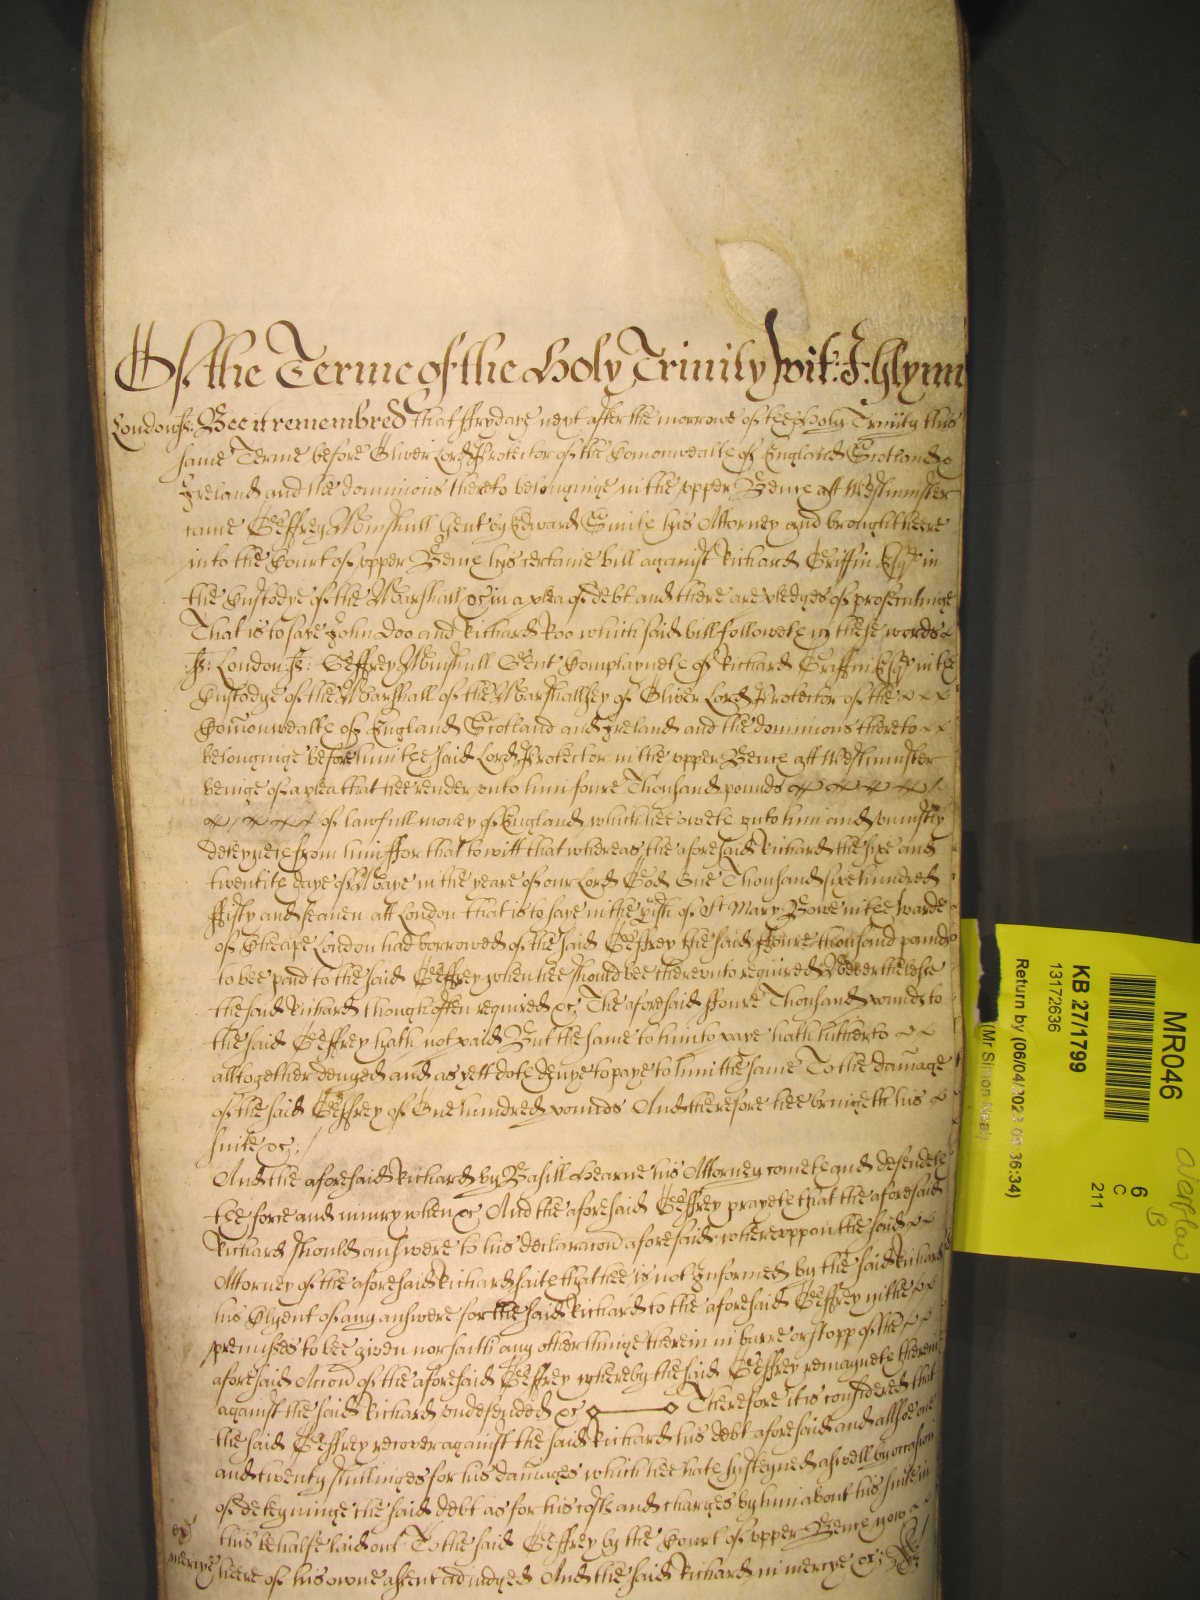 Of the Terme of the Holy Trinity wit: J: Glynn
London ss: Bee it remembred that ffrydaye next after the morrowe of the Holy Trinity this
same Terme before Oliver Lord Protector of the Comonwealth of England Scotland &
Ireland and the dominions thereto belonginge in the upper Bench att Westminster
came Geffrey Minshull Gent by Edward Smith his Attorney and brought heere
into the Court of upper Bench his certaine bill against Richard Griffin Esqr in
the Custodye of the Marshall &c in a plea of debt and there are pledges of prosecutinge
That is to saye John Doo and Richard Roo which said bill followeth in these words
ss: London ss: Geffrey Minshull Gent Complayneth of Richard Griffin Esqr in the
Custodye of the Marshall of the Marshallsey of Oliver Lord Protector of the
Comonwealth of England Scotland and Ireland and the dominions thereto
belonginge before him the said Lord Protector in the upper Bench att Westminster
beinge of a plea that hee render unto him foure Thousand pounds
of lawfull money of England which hee oweth unto him and uniustly
deteyneth from him ffor that to witt that whereas the aforesaid Richard the sixe and
twentith daye of Maye in the yeare of our Lord God One Thousand sixe hundred
ffifty and seaven att London that is to saye in the pish of St Mary Bowe in the warde
of Cheape London had borrowed of the said Geffrey the said ffoure thousand pounds
to bee paid to the said Geffrey when hee should bee thereunto required Neverthelesse
the said Richard though often required &c The aforesaid ffoure Thousand pounds to
the said Geffrey hath not paid But the same to him to paye hath hitherto
alltogether denyed and as yett doth denye to paye to him the same To the damage
of the said Geffrey of One hundred pounds And therefore hee bringeth his
suite &c:
And the aforesaid Richard by Basill Hearne his Attorney cometh and defendeth
the force and iniury when &c And the aforesaid Geffrey prayeth that the aforesaid
Richard should answere to his declaracon aforesaid whereuppon the said
Attorney of the aforesaid Richard saith that hee is not Informed by the said Richard
his Clyent of any answere for the said Richard to the aforesaid Geffrey in the
premisses to bee given nor saith any other thinge therein in barre or stopp of the
aforesaid Accon of the aforesaid Geffrey whereby the said Geffrey remayneth therein
against the said Richard undefended &c Therefore it is considered that
the said Geffrey recover against the said Richard his debt aforesaid and allsoe one
and twenty shillinges for his damages which hee hath susteyned aswell by occasion
of deteyninge the said debt as for his costs and charges by him about his suite in
this behalfe laid out To the said Geffrey by the Court of upper Bench now
mercye heere of his owne assent adiudged And the said Richard in mercye &c;
MR046
KB 27/1799
13172636
Return by (06/04/2023 09:36:34)
(Mr Simon Neal)
6
C
211
Overflow
B